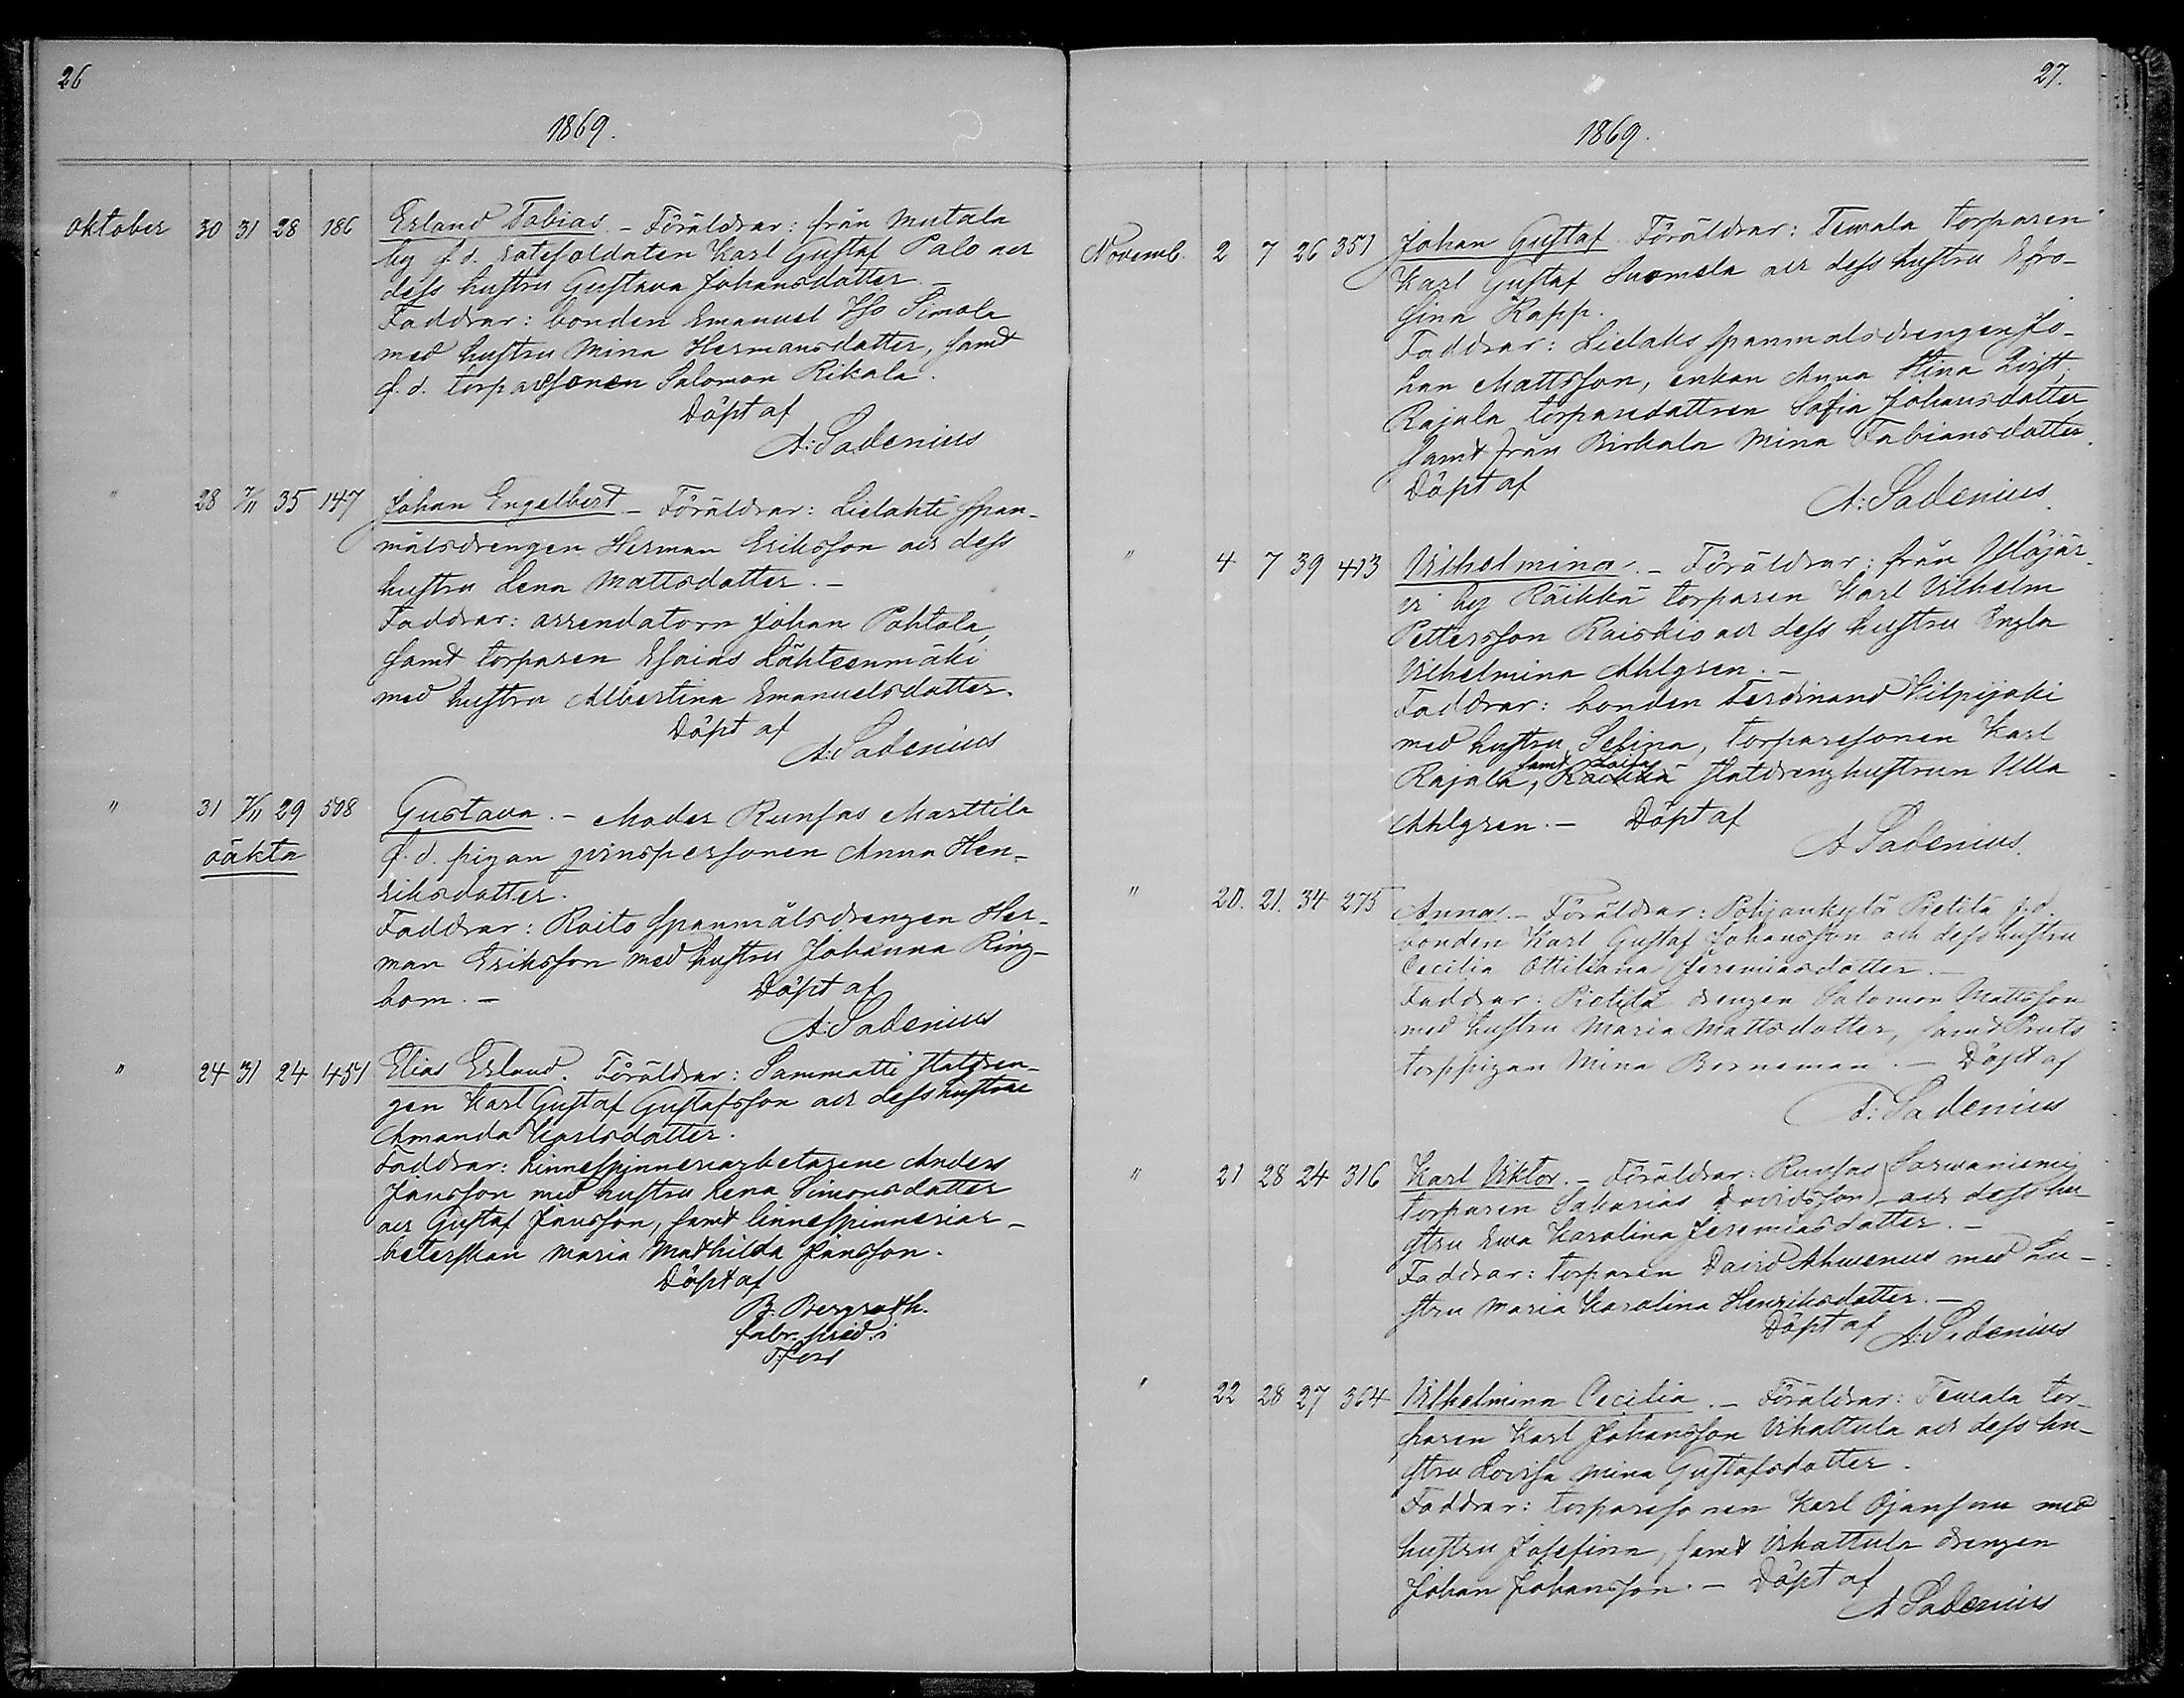 26
1869.
Oktober 30 31 28 186 Erland Tobias. – Föräldrar: från Mutala
by f. d. rotesoldaten Karl Gustaf Palo och
dess hustru Gustava Johansdotter. –
Faddrar: bonden Emanuel Iso Simola
med hustru Mina Hermansdotter, samt
f. d. torparesonen Salomon Rikala.
Döpt af
A: Sadenius
" 28 7/11 35 147 Johan Engelbert. – Föräldrar: Lielahti span-
målsdrengen Herman Eriksson och dess
hustru Lena Mattsdotter. –
Faddrar: arrendatorn Johan Pohtola,
samt torparen Esaias Lähteenmäki
med hustru Albertina Emanuelsdotter.
Döpt af
A: Sadenius
" 31 7/11 29 508 Gustava. – Moder Runsas Marttila
oäkta f. d. pigan qvinspersonen Anna Hen-
riksdotter.
Faddrar: Roito spanmålsdrengen Her-
man Eriksson med hustru Johanna Ring-
bom. – Döpt af
A: Sadenius
" 24 31 24 451 Elias Erland. Föräldrar: Sammatti statdren-
gen Karl Gustaf Gustafsson och dess hustru
Amanda Karlsdotter.
Faddrar: Linnespinneriarbetarene Anders
Jansson med hustru Lena Simonsdotter
och Gustaf Jansson, samt linnespinneriar-
beterskan Maria Mathilda Jansson.
Döpt af
B. Bergroth.
fabr. pred. i
T:fors
27.
1869.
Novemb. 2 7 26 351 Johan Gustaf. Föräldrar: Temala torparen
Karl Gustaf Suomela och dess hustru Efro-
sina Rapp.
Faddrar: Lielaks spanmålsdrengen Jo-
han Mattsson, enkan Anna Stina Qvist,
Rajala torparedottren Sofia Johansdotter
samt från Birkala Mina Fabiansdotter.
Döpt af
A: Sadenius.
" 4 7 39 413 Vilhelmina. – Föräldrar: från Ylöjär-
vi by Räikkä torparen Karl Vilhelm
Pettersson Raiskio och dess hustru Engla
Vilhelmina Ahlgren. –
Faddrar: bonden Ferdinand Kilpijoki
med hustru Sefina, torparesonen Karl
Rajala, samt Räikkä statdrenghustrun Ulla
Ahlgren. – Döpt af
A Sadenius.
" 20. 21. 34 275 Anna. – Föräldrar: Pohjankylä Pietilä f. d.
bonden Karl Gustaf Johansson och dess hustru
Cecilia Ottiliana Jeremiasdotter. –
Faddrar: Pietilä drengen Salomon Mattsson
med hustru Maria Mattsdotter, samt
torppigan Mina Borneman. – Döpt af
A: Sadenius
" 21 28 24 316 Karl Viktor. – Föräldrar: Runsas Sarwaniemi
torparen Sakarias Davidsson och dess hu-
stru Ewa Karolina Jeremiasdotter. –
Faddrar: torparen David Ahwenus med hu-
stru Maria Karolina Henriksdotter. –
Döpt af A: Sadenius
" 22 28 27 364 Vilhelmina Cecilia. – Föräldrar: Temala tor-
paren Karl Johansson Vihattula och dess hu-
stru Lovisa Mina Gustafsdotter.
Faddrar: torparesonen Karl Ojansuu med
hustru Josefina, samt Vihattula drengen
Johan Johansson. – Döpt af
A Sadenius